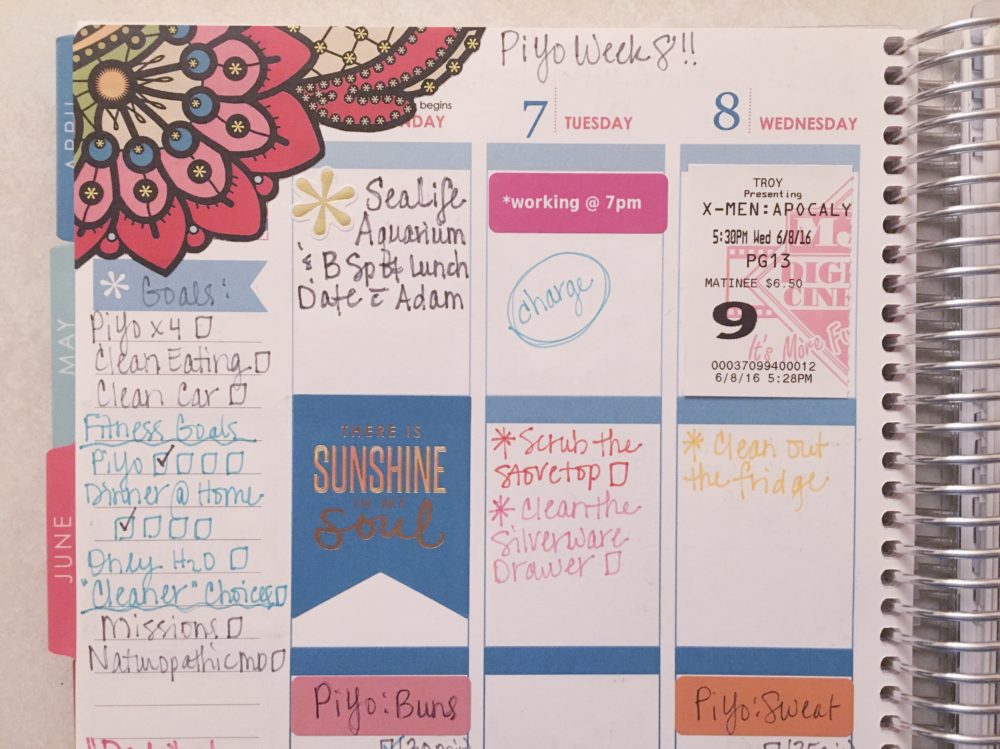 PiYo Week 8!!
begins
NDAY
7 TUESDAY
8 WEDNESDAY
APRIL
MAY
JUNE
Goals:
PiYo x 4
Clean Eating
Clean Car
Fitness Goals
PiYo
Dinner @ Home
Only H2O
"Cleaner" Choices
Missions
Naturopathic MD
Sealife
Aquarium
& B Spot Lunch
Date c̄ Adam
THERE IS
SUNSHINE
IN MY
Soul
PiYo: Buns
*working @ 7pm
charge
* Scrub the
Stovetop
* Clean the
Silverware
Drawer
TROY
Presenting
X-MEN:APOCALY
5:30PM Wed 6/8/16
PG13
MATINEE $6.50
9
It's More Fu
00037099400012
6/8/16 5:28PM
* Clean out
the fridge
PiYo: Sweat